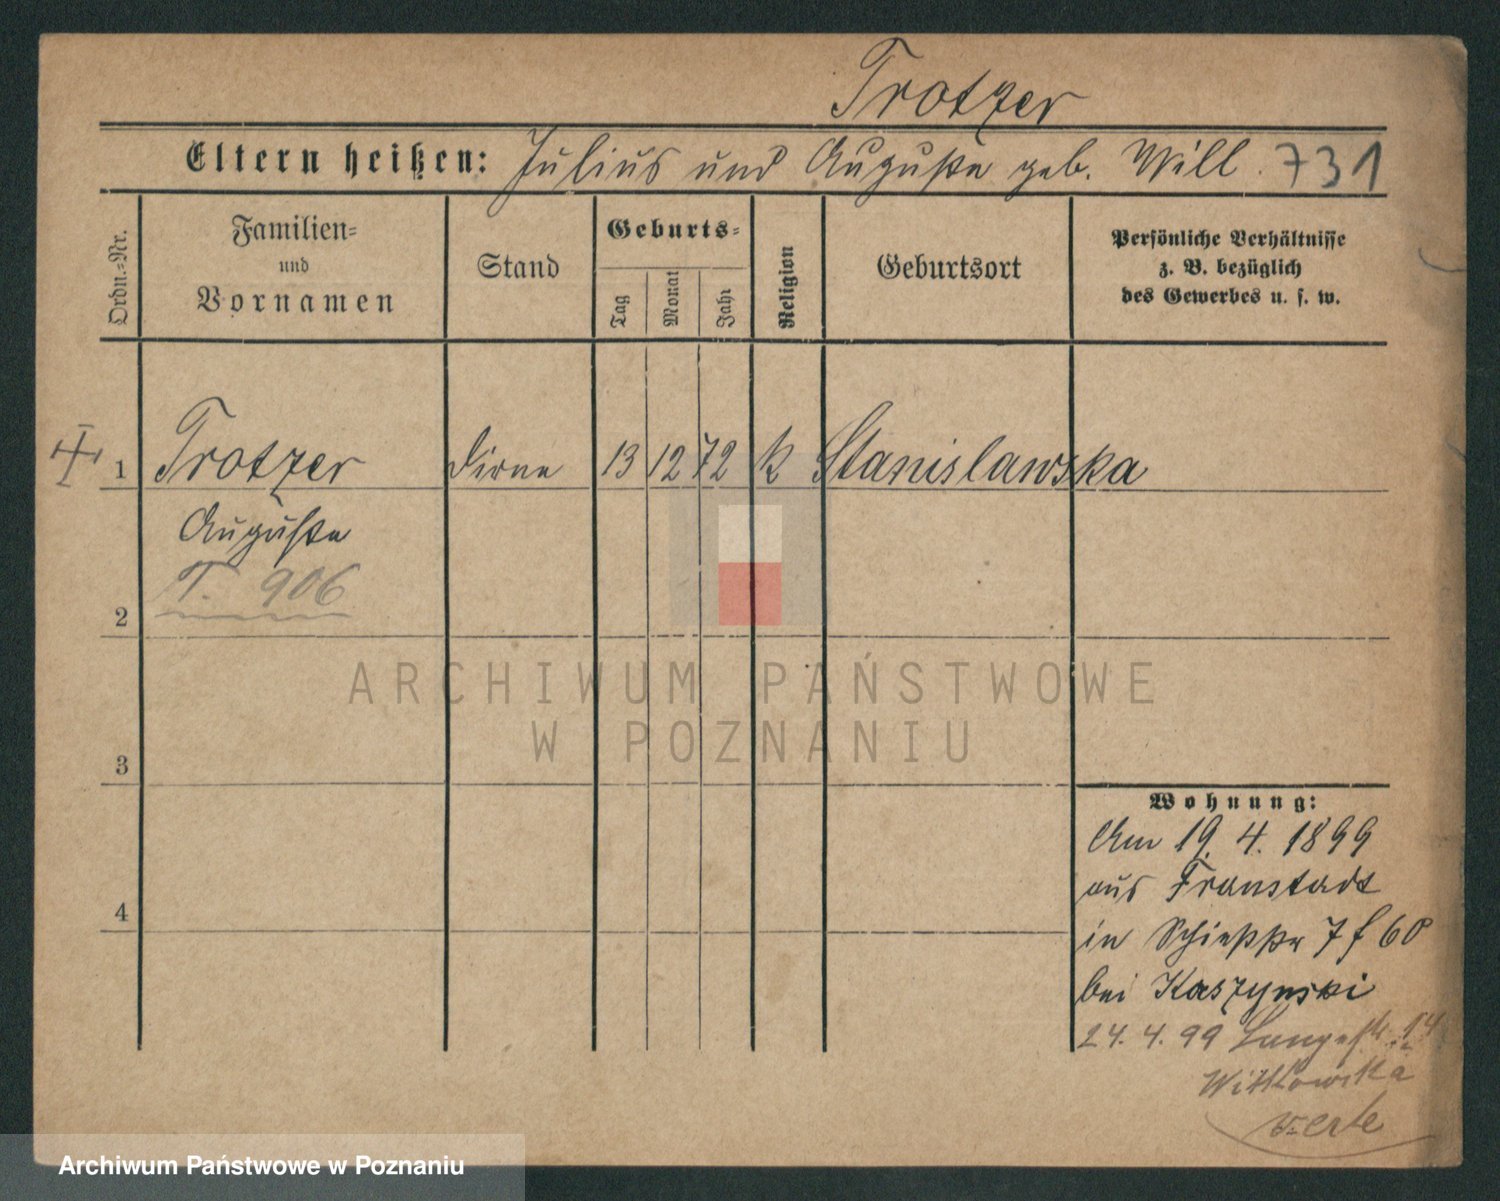 Trotzer
Eltern heißen: Julius und Auguste geb. Will. 731
Ordn.=Nr.
Familien=
und
Vornamen
Stand
Geburts=
Tag
Monat
Jahr
Religion
Geburtsort
Persönliche Verhältnisse
z. B. bezüglich
des Gewerbes u. s. w.
1 Trotzer Dirne 13 12 72 k Stanislawska
Auguste
T. 906
2
3
4
Wohnung:
Am 19. 4. 1899
aus Fraustadt
in 7 f 60
bei Kaszynski
24. 4. 99 Langestr. 14
Witkowska
ARCHIWUM PAŃSTWOWE
W POZNANIU
Archiwum Państwowe w Poznaniu